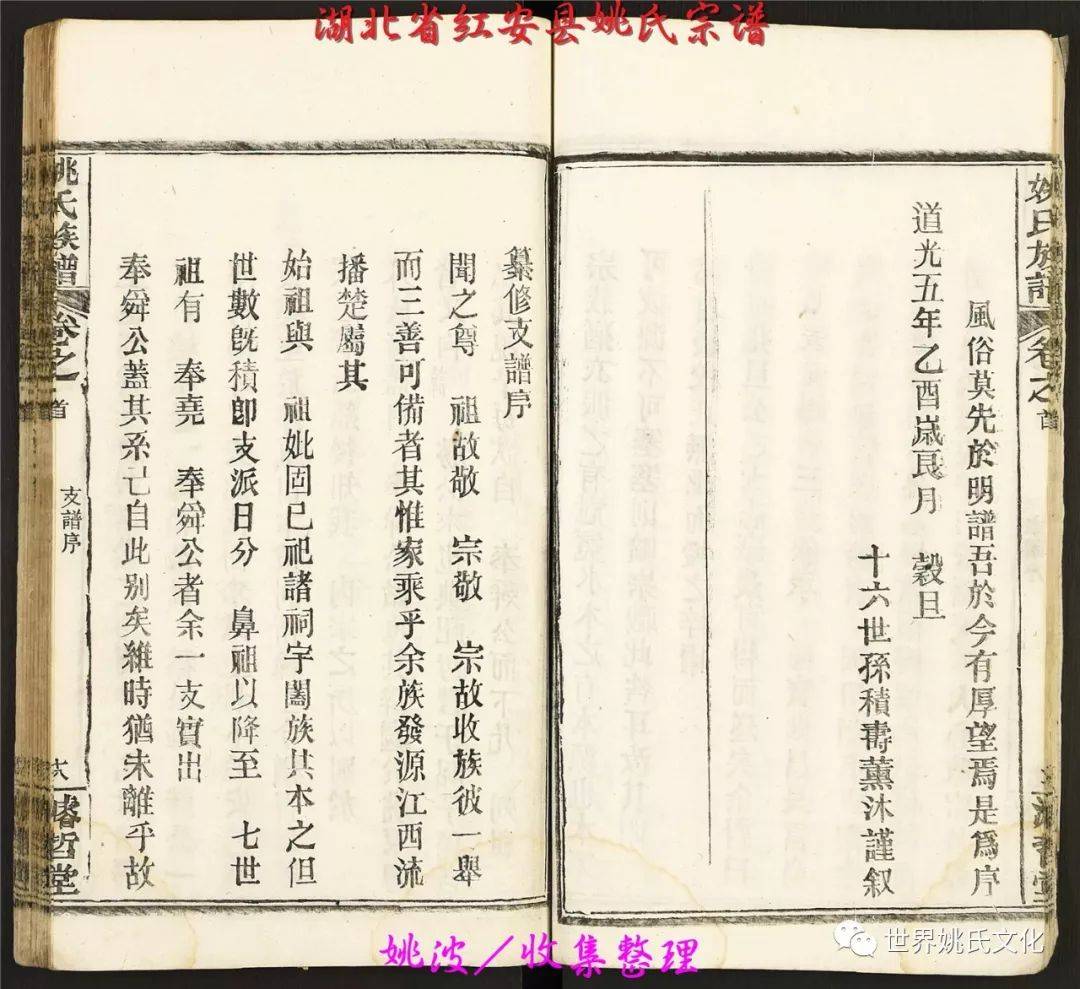 湖北省红安县姚氏宗谱
姚氏族譜 卷之首
風俗莫先於明譜吾於今有厚望焉是爲序
道光五年乙酉嵗良月 榖旦
十六世孫積壽薰沐謹叙
纂修支譜序
聞之尊 祖故敬 宗敬 宗故收族彼一舉
而三善可備者其惟家乘乎余族發源江西流
播楚屬其
始祖與 祖妣固已祀諸祠宇闔族共本之但
世數旣積卽支派日分 鼻祖以降至 七世
祖有 奉堯 奉舜公者余一支實出
奉舜公蓋其系亡自此别矣維時猶未離乎故
姚氏族譜 卷之首 支譜序 濬哲堂
姚波／收集整理
世界姚氏文化